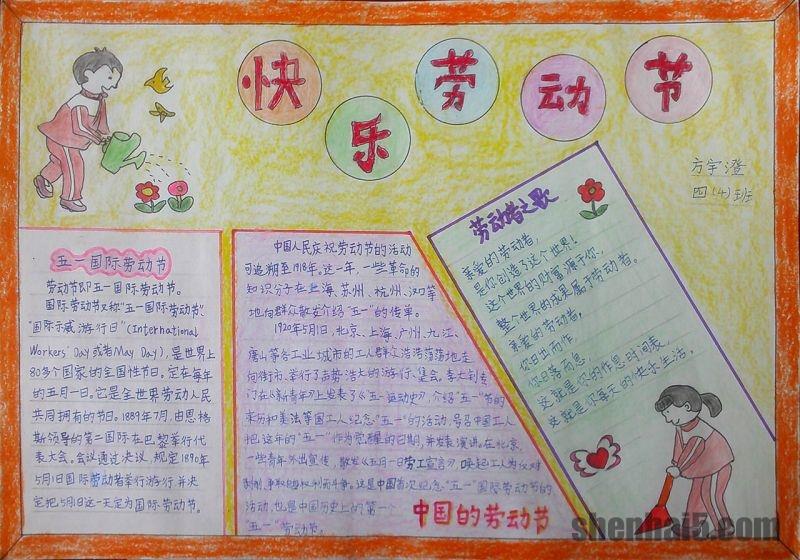 快乐劳动节
方宇澄
四(4)班
五一国际劳动节
劳动节即五一国际劳动节。
国际劳动节又称"五一国际劳动节"、
"国际示威游行日"(International
Workers' Day或者May Day),是世界上
80多个国家的全国性节日。定在每年
的五月一日。它是全世界劳动人民
共同拥有的节日。1889年7月,由恩格
斯领导的第一国际在巴黎举行代
表大会。会议通过决议,规定1890年
5月1日国际劳动者举行游行并决
定把5月1日这一天定为国际劳动节。
中国人民庆祝劳动节的活动
可追溯至1918年。这一年,一些革命的
知识分子在上海、苏州、杭州、汉口等
地向群众散发介绍"五一"的传单。
1920年5月1日,北京、上海、广州、九江、
唐山等各工业城市的工人群众浩浩荡荡地走
向街市、举行了声势浩大的游行、集会。李大钊专
门在《新青年》上发表了《五一运动史》,介绍"五一"节的
来历和美法等国工人纪念"五一"的活动,号召中国工人
把这年的"五一"作为觉醒的日期,并发表演讲。在北京,
一些青年外出宣传,散发《五月一日劳工宣言》,唤起工人为反对
剥削、争取权利而斗争。这是中国首次纪念"五一"国际劳动节的
活动,也是中国历史上的第一个
"五一"劳动节。
中国的劳动节
劳动者之歌
亲爱的劳动者,
是你创造了这个世界!
这个世界的财富源于你,
整个世界的成果属于劳动者。
亲爱的劳动者,
你日出而作,
你日落而息,
这就是你的作息时间表,
这就是你每天的快乐生活。
shenhai5.com